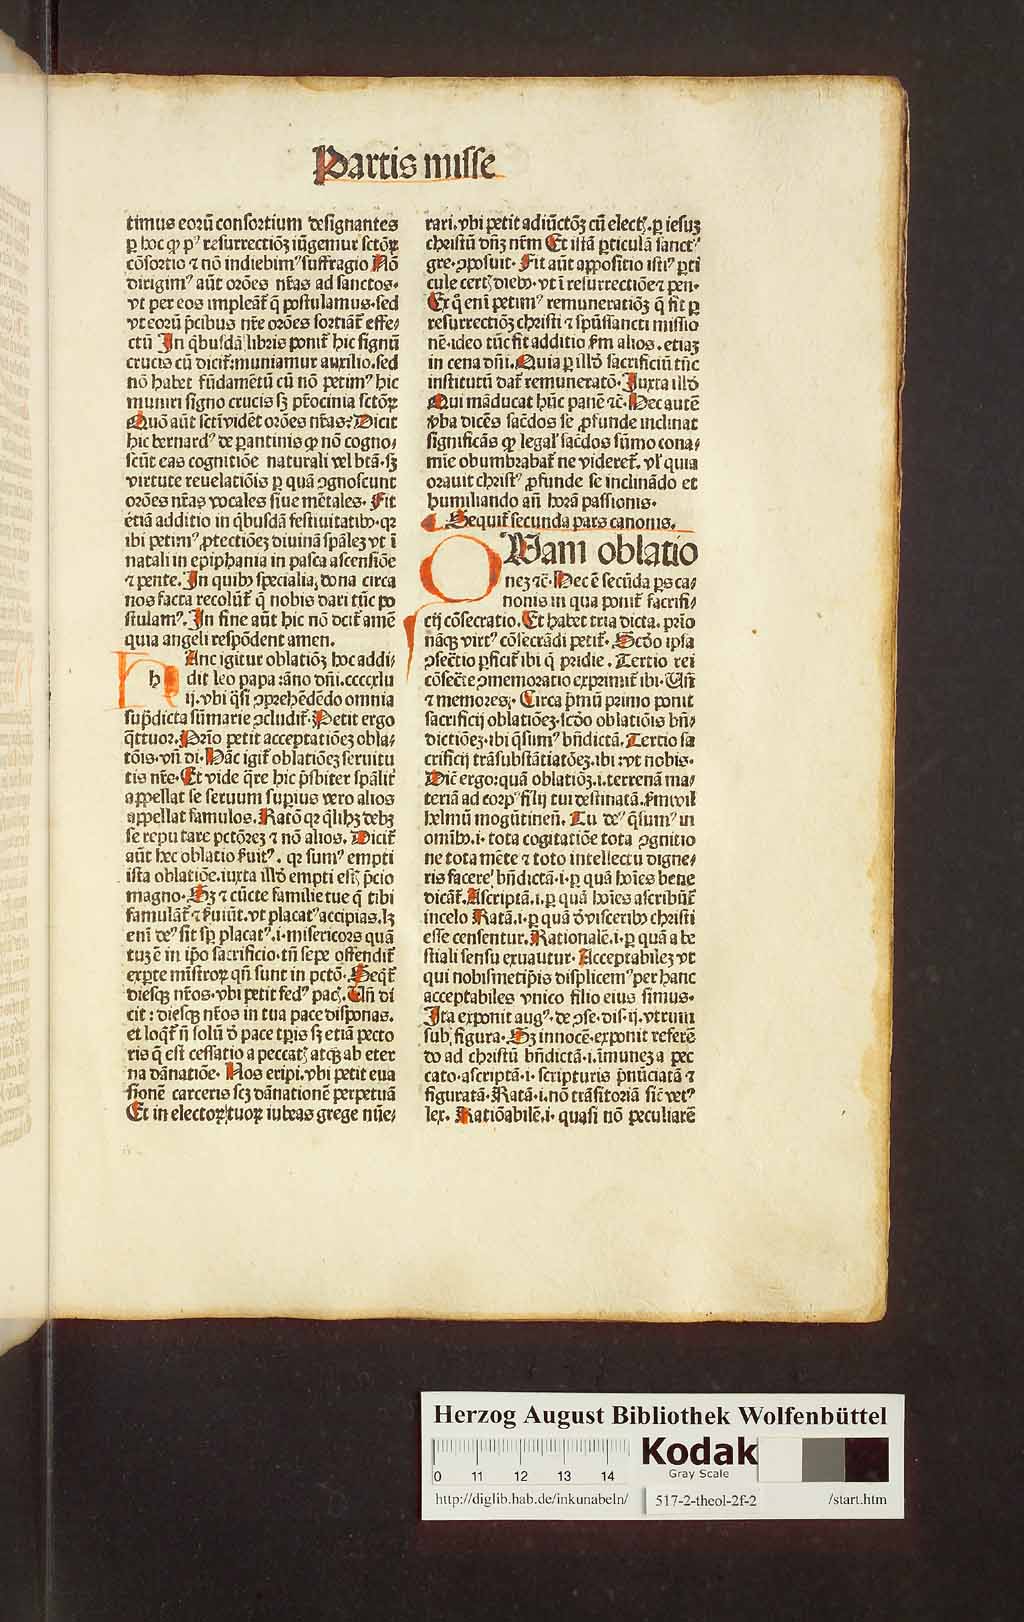 Partis misse
timus eorū consortium designantes
ꝑ hoc ꝙ pꝰ resurrectiōꝫ iūgemur sctōꝝ
cōsortio ⁊ nō indiebimꝰ suffragio Nō
dirigimꝰ aūt orōes nr̄as ad sanctos.
vt per eos impleat̄ q̄ postulamus. sed
vt eorū p̄cibus nr̄e orōes sortiāt̄ effe⸗
ctū In q̄busdā libris ponit̄ hic signū
crucis cū dicit̄: muniamur auxilio. sed
nō habet fūdamētū cū nō petimꝰ hic
muniri signo crucis sꝫ pr̄ocinia sctōꝝ
Quō aūt sctī vidēt orōes nr̄as? Dicit
hic bernardꝰ de parantinis ꝙ nō cogno⸗
scūt eas cognitiōe naturali vel btā. sꝫ
virtute reuelatiōis ꝑ quā ꝯgnoscunt
orōes nr̄as vocales siue mētales. Fit
etiā additio in q̄busdā festiuitatibꝰ. qꝛ
ibi petimꝰ ꝓtectiōeꝫ diuinā spāleꝫ vt ī
natali in epiphania in pasca ascensiōe
⁊ pente. In quibꝰ specialia dona circa
nos facta recolūt̄ q̄ nobis dari tūc po
stulamꝰ. In fine aūt hic nō dcit̄ amē
quia angeli respōdent amen.
h Anc igitur oblatiōꝫ hoc addi⸗
dit leo papa: āno dn̄i. ccccxlu
ij. vbi q̄si ꝯprehēdēdo omnia
sup̄dicta sūmarie ꝯcludit̄. Petit ergo
q̄ttuor. Prīo petit acceptatiōeꝫ obla⸗
tōis. vn̄ di. Hāc igit̄ oblatiōeꝫ seruitu
tis nr̄e. Et vide q̄re hic p̄sbiter spālit̄
appellat se seruum suꝑius vero alios
appellat famulos. Ratō qꝛ q̄libꝫ debꝫ
se reputare pctōreꝫ ⁊ nō alios. Dicit̄
aūt hec oblatio fuitꝰ. qꝛ sumꝰ empti
ista oblatiōe. iuxta illō empti estꝭ p̄cio
magno. Sꝫ ⁊ cūcte familie tue q̄ tibi
famulāt̄ ⁊ fuiūt. vt placatꝰ accipias. lꝫ
enī deꝰ sit sꝑ placatꝰ. i. misericors quā
tuꝫ ē in ip̄o sacrificio. tn̄ sepe offendit̄
exꝑte mīstroꝝ qn̄ sunt in pctō. Seqt̄
diesqꝫ nr̄os. vbi petit fedꝰ pacꝭ. Vn̄ di
cit: diesqꝫ nr̄os in tua pace disponas.
et loqt̄ n̄ solū ō pace tꝑis sꝫ etiā pecto
ris q̄ est cessatio a peccatꝭ atqꝫ ab eter
na dānatiōe. Nos eripi. vbi petit eua
sionē carceris scꝫ dānationē perpetuā
Et in electoꝝ tuoꝝ iubeas grege nūe⸗
rari. vbi petit adiūctōꝫ cū electꝭ. ꝑ iesuꝫ
christū dn̄ꝫ nr̄m Et istā ꝑticulā sanctꝰ
gre. ꝯposuit. Fit aūt appositio istiꝰ ꝑti
cule certꝭ diebꝰ. vt ī resurrectiōe ⁊ pen.
Ex q̄ enī petimꝰ remuneratiōꝫ q̄ fit ꝑ
resurrectiōꝫ christi ⁊ spūssancti missio
nē. ideo tūc fit additio ẜm alios. etiaꝫ
in cena dn̄i. Quia ꝑ illō sacrificiū tūc
institutū dat̄ remuneratō. Juxta illō
Qui māducat hūc panē ⁊c̄. Hec autē
v̄ba dicēs sac̄dos se ꝓfunde inclinat
significās ꝙ legaꝉ sac̄dos sūmo cona⸗
mīe obumbrabat̄ ne videret̄. vꝉ quia
orauit christꝰ ꝓfunde se inclinādo et
humiliando an̄ horā passionis.
Sequit̄ secunda pars canonis.
QVam oblatio
neꝫ ⁊c̄. Hec ē secūda ꝑs ca⸗
nonis in qua ponit̄ sacrifi⸗
cij cōsecratio. Et habet tria dicta. prīo
nāqꝫ virtꝰ cōsecrādi petit̄. Scdo ipsa
ꝯsectio ꝑficit̄ ibi q̄ pridie. Tertio rei
cōsecrē ꝯmemoratio exprimit̄ ibi. Vn̄
⁊ memores. Circa p̄mū primo ponit
sacrificij oblatiōeꝫ. scdo oblatiōis bn̄⸗
dictiōeꝫ. ibi q̄sumꝰ bn̄dictā. Tertio sa
crificij trāsubstātiatōeꝫ. ibi: vt nobis.
Dic̄ ergo: quā oblatiōꝫ. i. terrenā ma⸗
teriā ad corpꝰ filij tui destinatā. ẜm wil
helmū mogūtinen̄. Tu deꝰ q̄sumꝰ in
omībꝰ. i. tota cogitatiōe tota ꝯgnitio
ne tota mēte ⁊ toto intellectu digne⸗
ris facere bn̄dictā. i. ꝑ quā hoīes bene
dicāt̄. Ascriptā. i. ꝑ quā hoīes ascribūt̄
in celo Ratā. i. ꝑ quā ō visceribꝰ christi
esse censentur. Rationalē. i. ꝑ quā a be
stiali sensu exuautur. Acceptabileꝫ vt
qui nobismetip̄is displicemꝰ per hanc
acceptabiles vnico filio eius simus.
Ita exponit augꝰ. de ꝯse. dis. ij. vtrum
sub figura. Sꝫ innocē. exponit referē
do ad christū bn̄dictā. i. īmuneꝫ a pec
cato. ascriptā. i. scripturis p̄nūciatā ⁊
figuratā. Ratā. i. nō trāsitoriā sic̄ vetꝰ
lex. Ratiōabilē. i. quasi nō peculiarē
Herzog August Bibliothek Wolfenbüttel
Kodak
Gray Scale
0 11 12 13 14
http://diglib.hab.de/inkunabeln/ 517-2-theol-2f-2 /start.htm